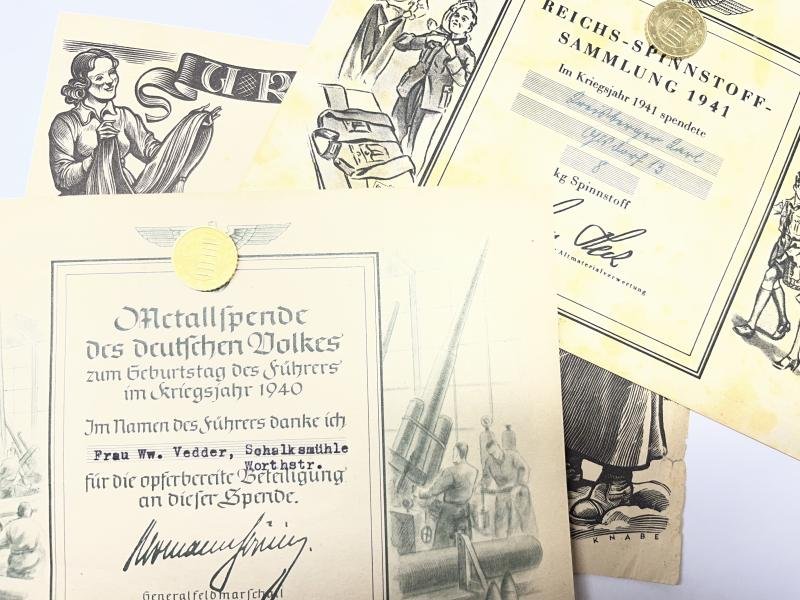 UR
REICHS-SPINNSTOFF-
SAMMLUNG 1941
Im Kriegsjahr 1941 spendete
Karl
8
kg Spinnstoff
Heck
Altmaterialverwertung
Metallspende
des deutschen Volkes
zum Geburtstag des Führers
im Kriegsjahr 1940
Im Namen des Führers danke ich
Frau Ww. Vedder, Schalksmühle
Worthstr.
für die opferbereite Beteiligung
an dieser Spende.
Hermann Göring.
Generalfeldmarschall
KNABE